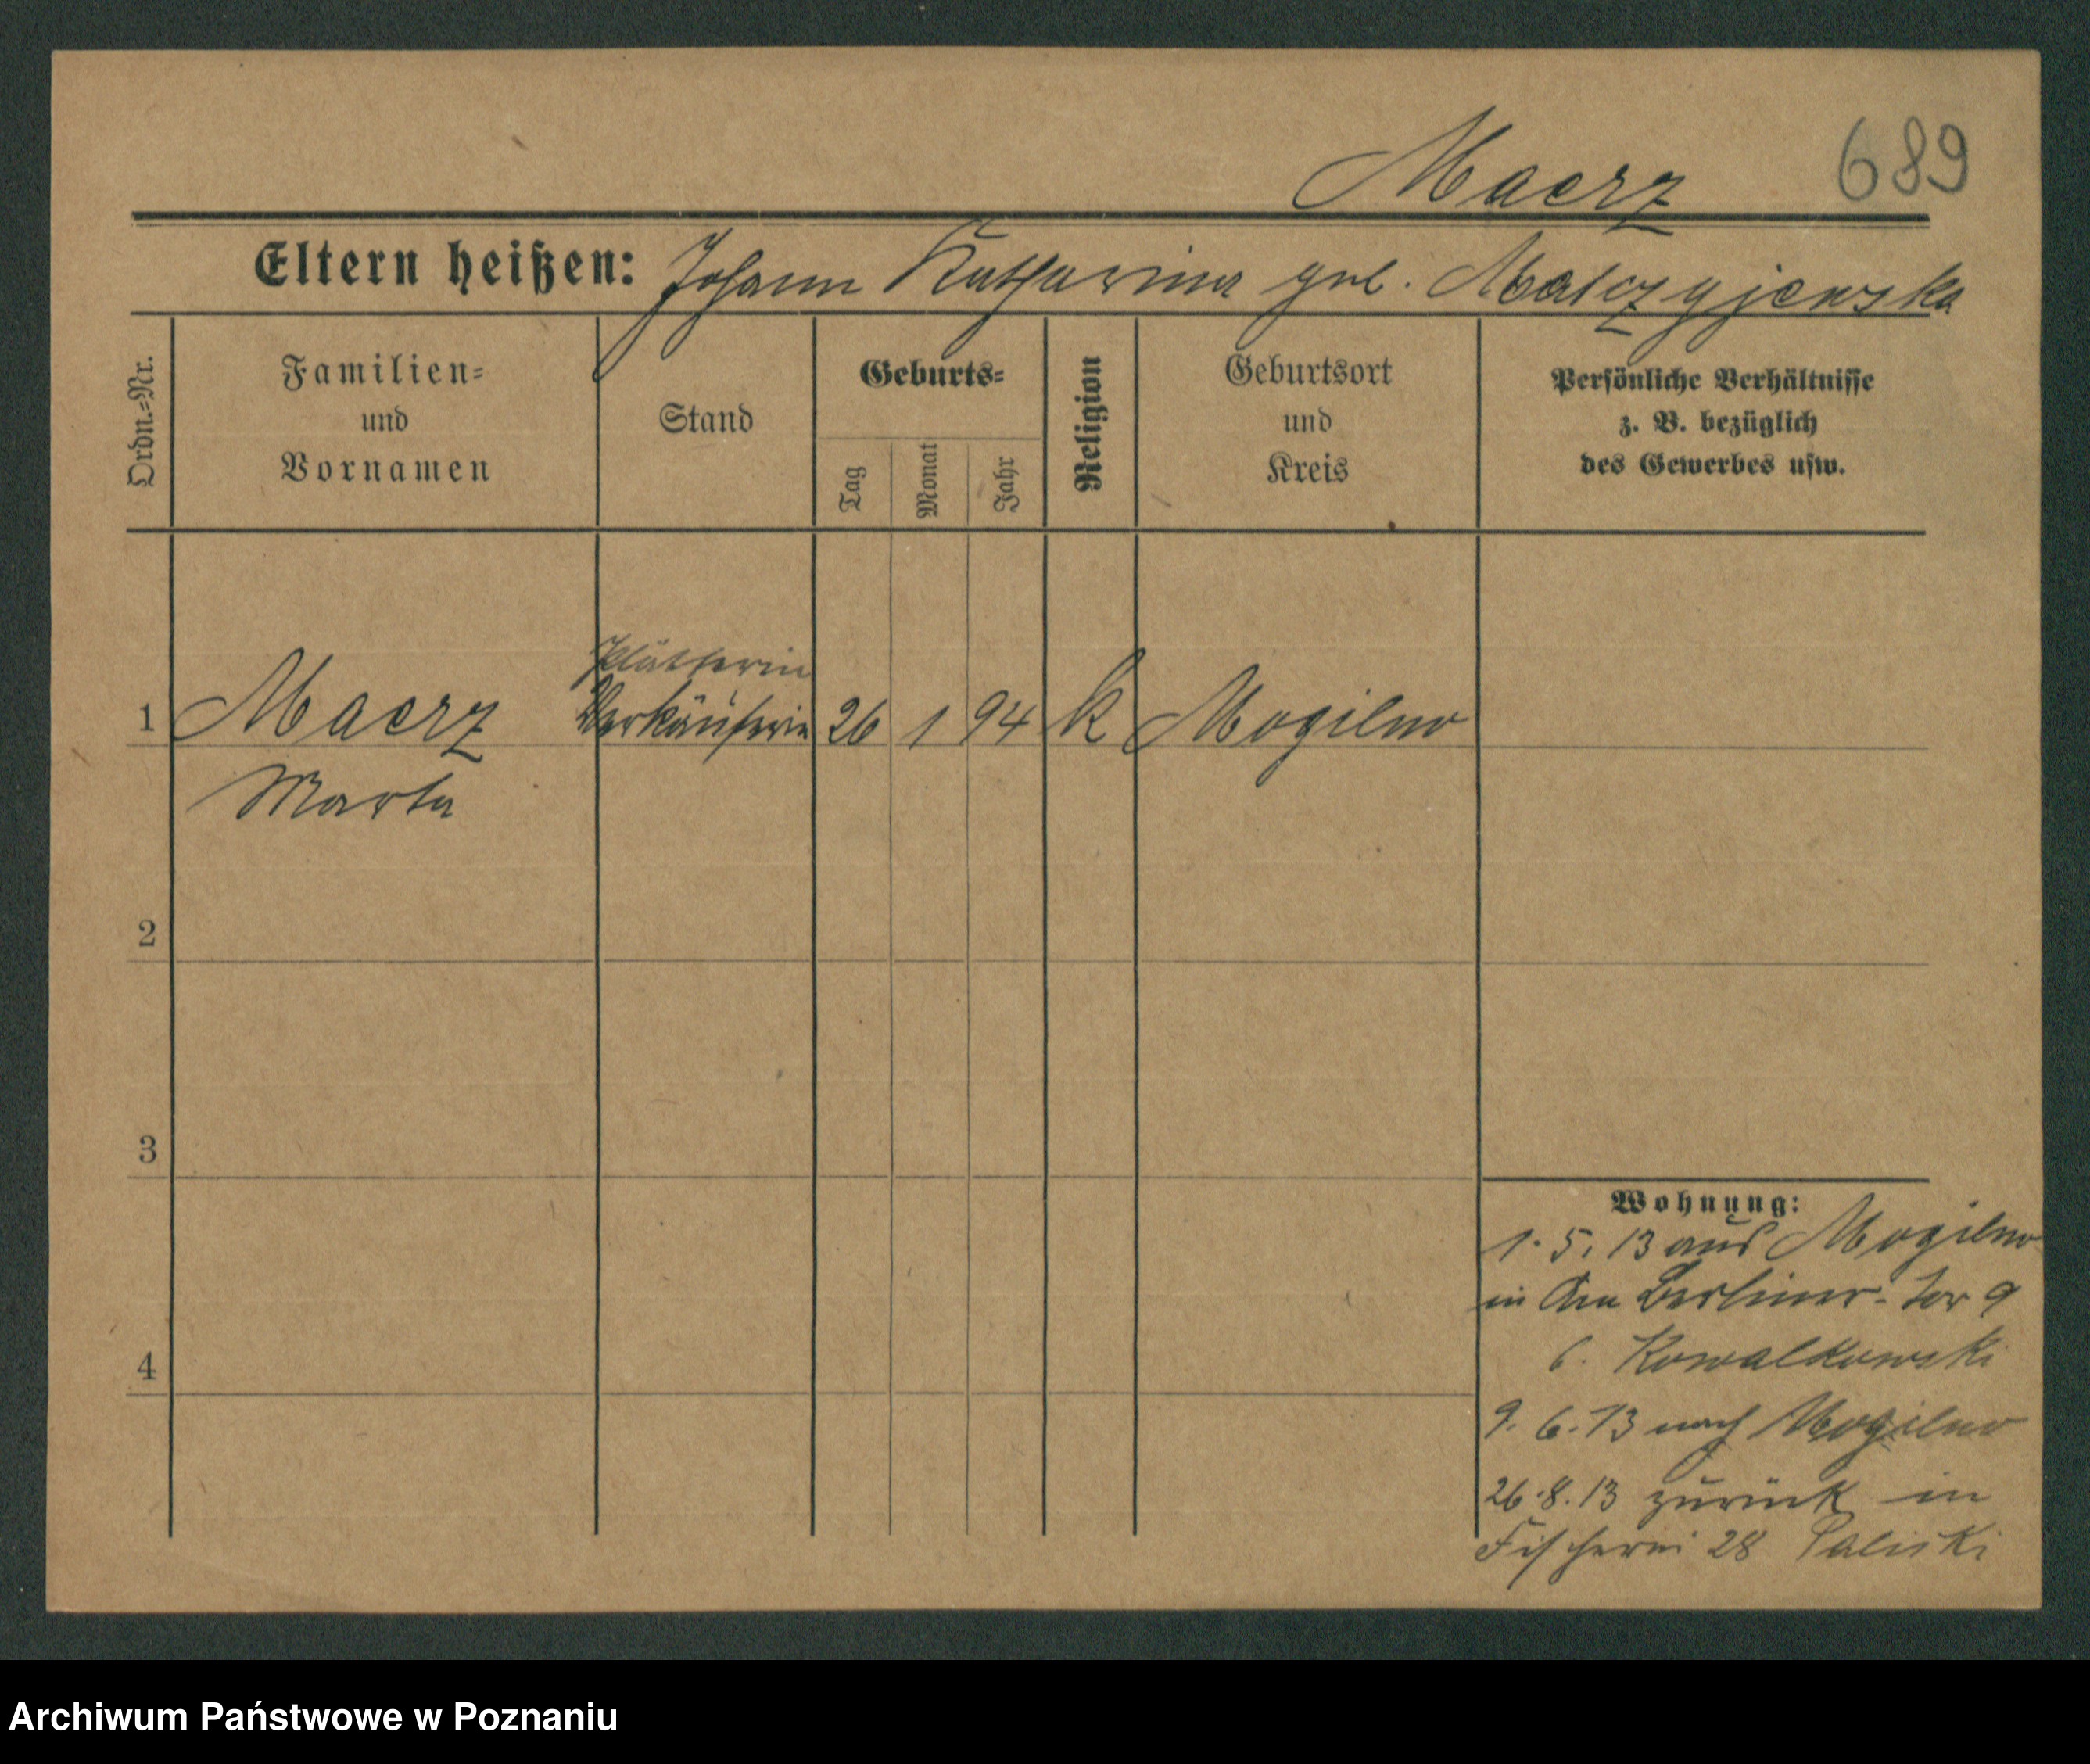 Maerz 689
Eltern heißen: Johann Katharina geb. Malczyjewska
Ordn.-Nr.
Familien-
und
Vornamen
Stand
Geburts-
Tag
Monat
Jahr
Religion
Geburtsort
und
Kreis
Persönliche Verhältnisse
z. B. bezüglich
des Gewerbes usw.
Plätterin
1 Maerz Verkäuferin 26 1 94 k Mogilno
Marta
2
3
4
Wohnung:
1. 5. 13 aus Mogilno
in Am Berliner-Tor 9
b. Kowalkowski
9. 6. 13 nach Mogilno
26. 8. 13 zurück in
Fischerei 28 Paliski
Archiwum Państwowe w Poznaniu